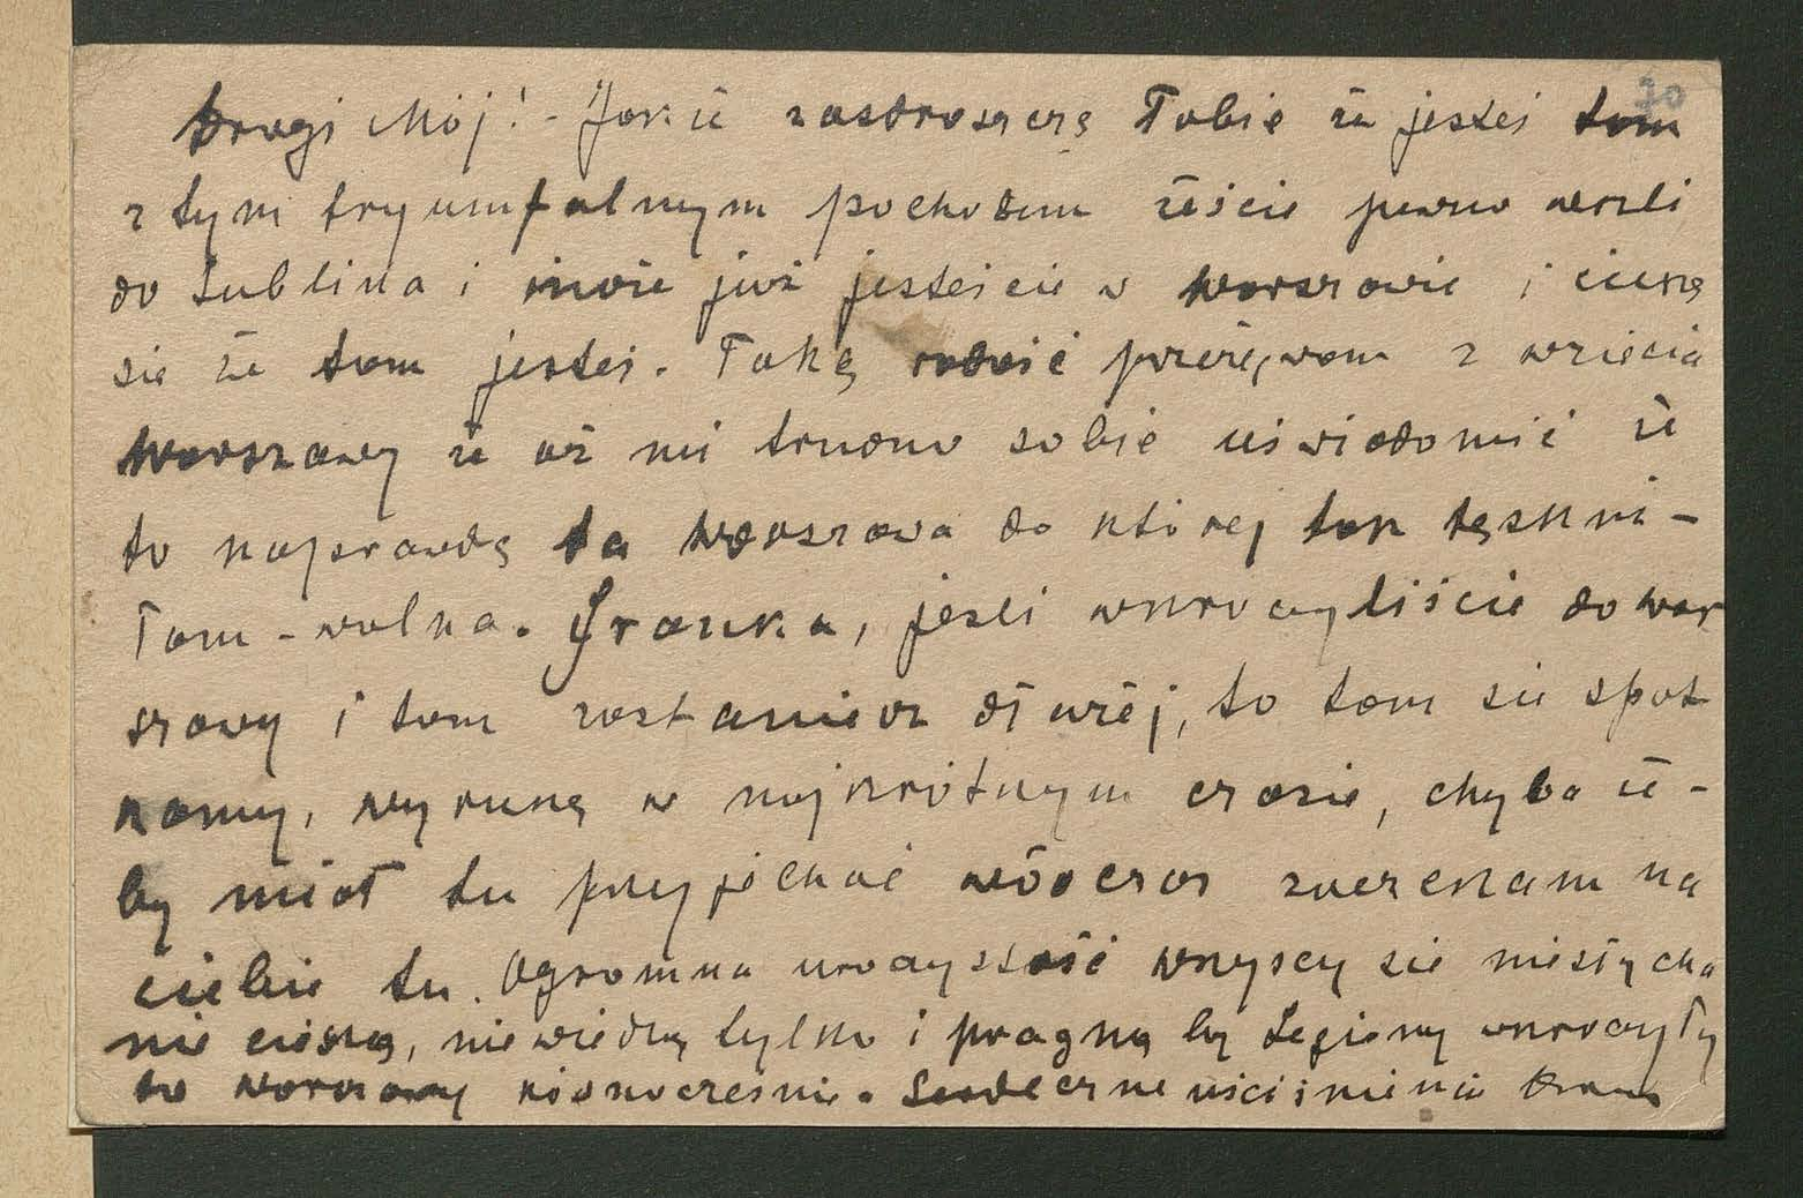 Drogi Mój! - Jakże zazdroszczę Tobie że jesteś tam
z tym tryumfalnym pochodem żeście pewno weszli
do Lublina i może już jesteście w Warszawie i cieszę
sie że tam jesteś. Taką radość przeżywam z wzięcia
Warszawy że aż mi trudno sobie uświadomić że
to naprawdę ta Warszawa do której tak tęskni-
łam - wolna. , jeśli wkroczyliście do War
szawy i tam zostaniesz dłużej, to tam sie spot
kamy, wyruszę w najkrótszym czasie, chyba że -
by miał tu przyjechać wówczas zaczekam na
ciebie tu. Ogromna uroczystość wszyscy sie niesłycha
nie cieszą, nie wiedzą tylko i pragną by Legiony wkroczyły
do Warszawy równocześnie. Serdeczne uściśnienia